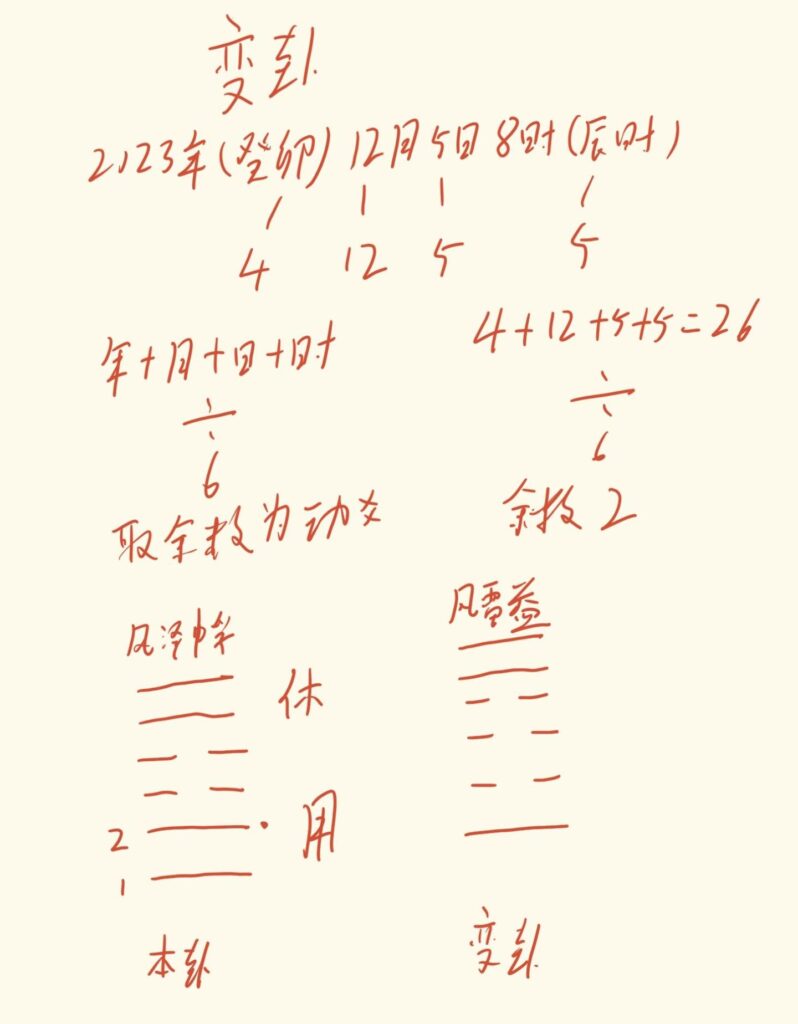 变卦
2023年(癸卯) 12月5日 8时(辰时)
4 12 5 5
年+月+日+时
÷
6
取余数为动爻
4+12+5+5=26
÷
6
余数 2
风泽中孚
体
2
用
1
本卦
风雷益
变卦